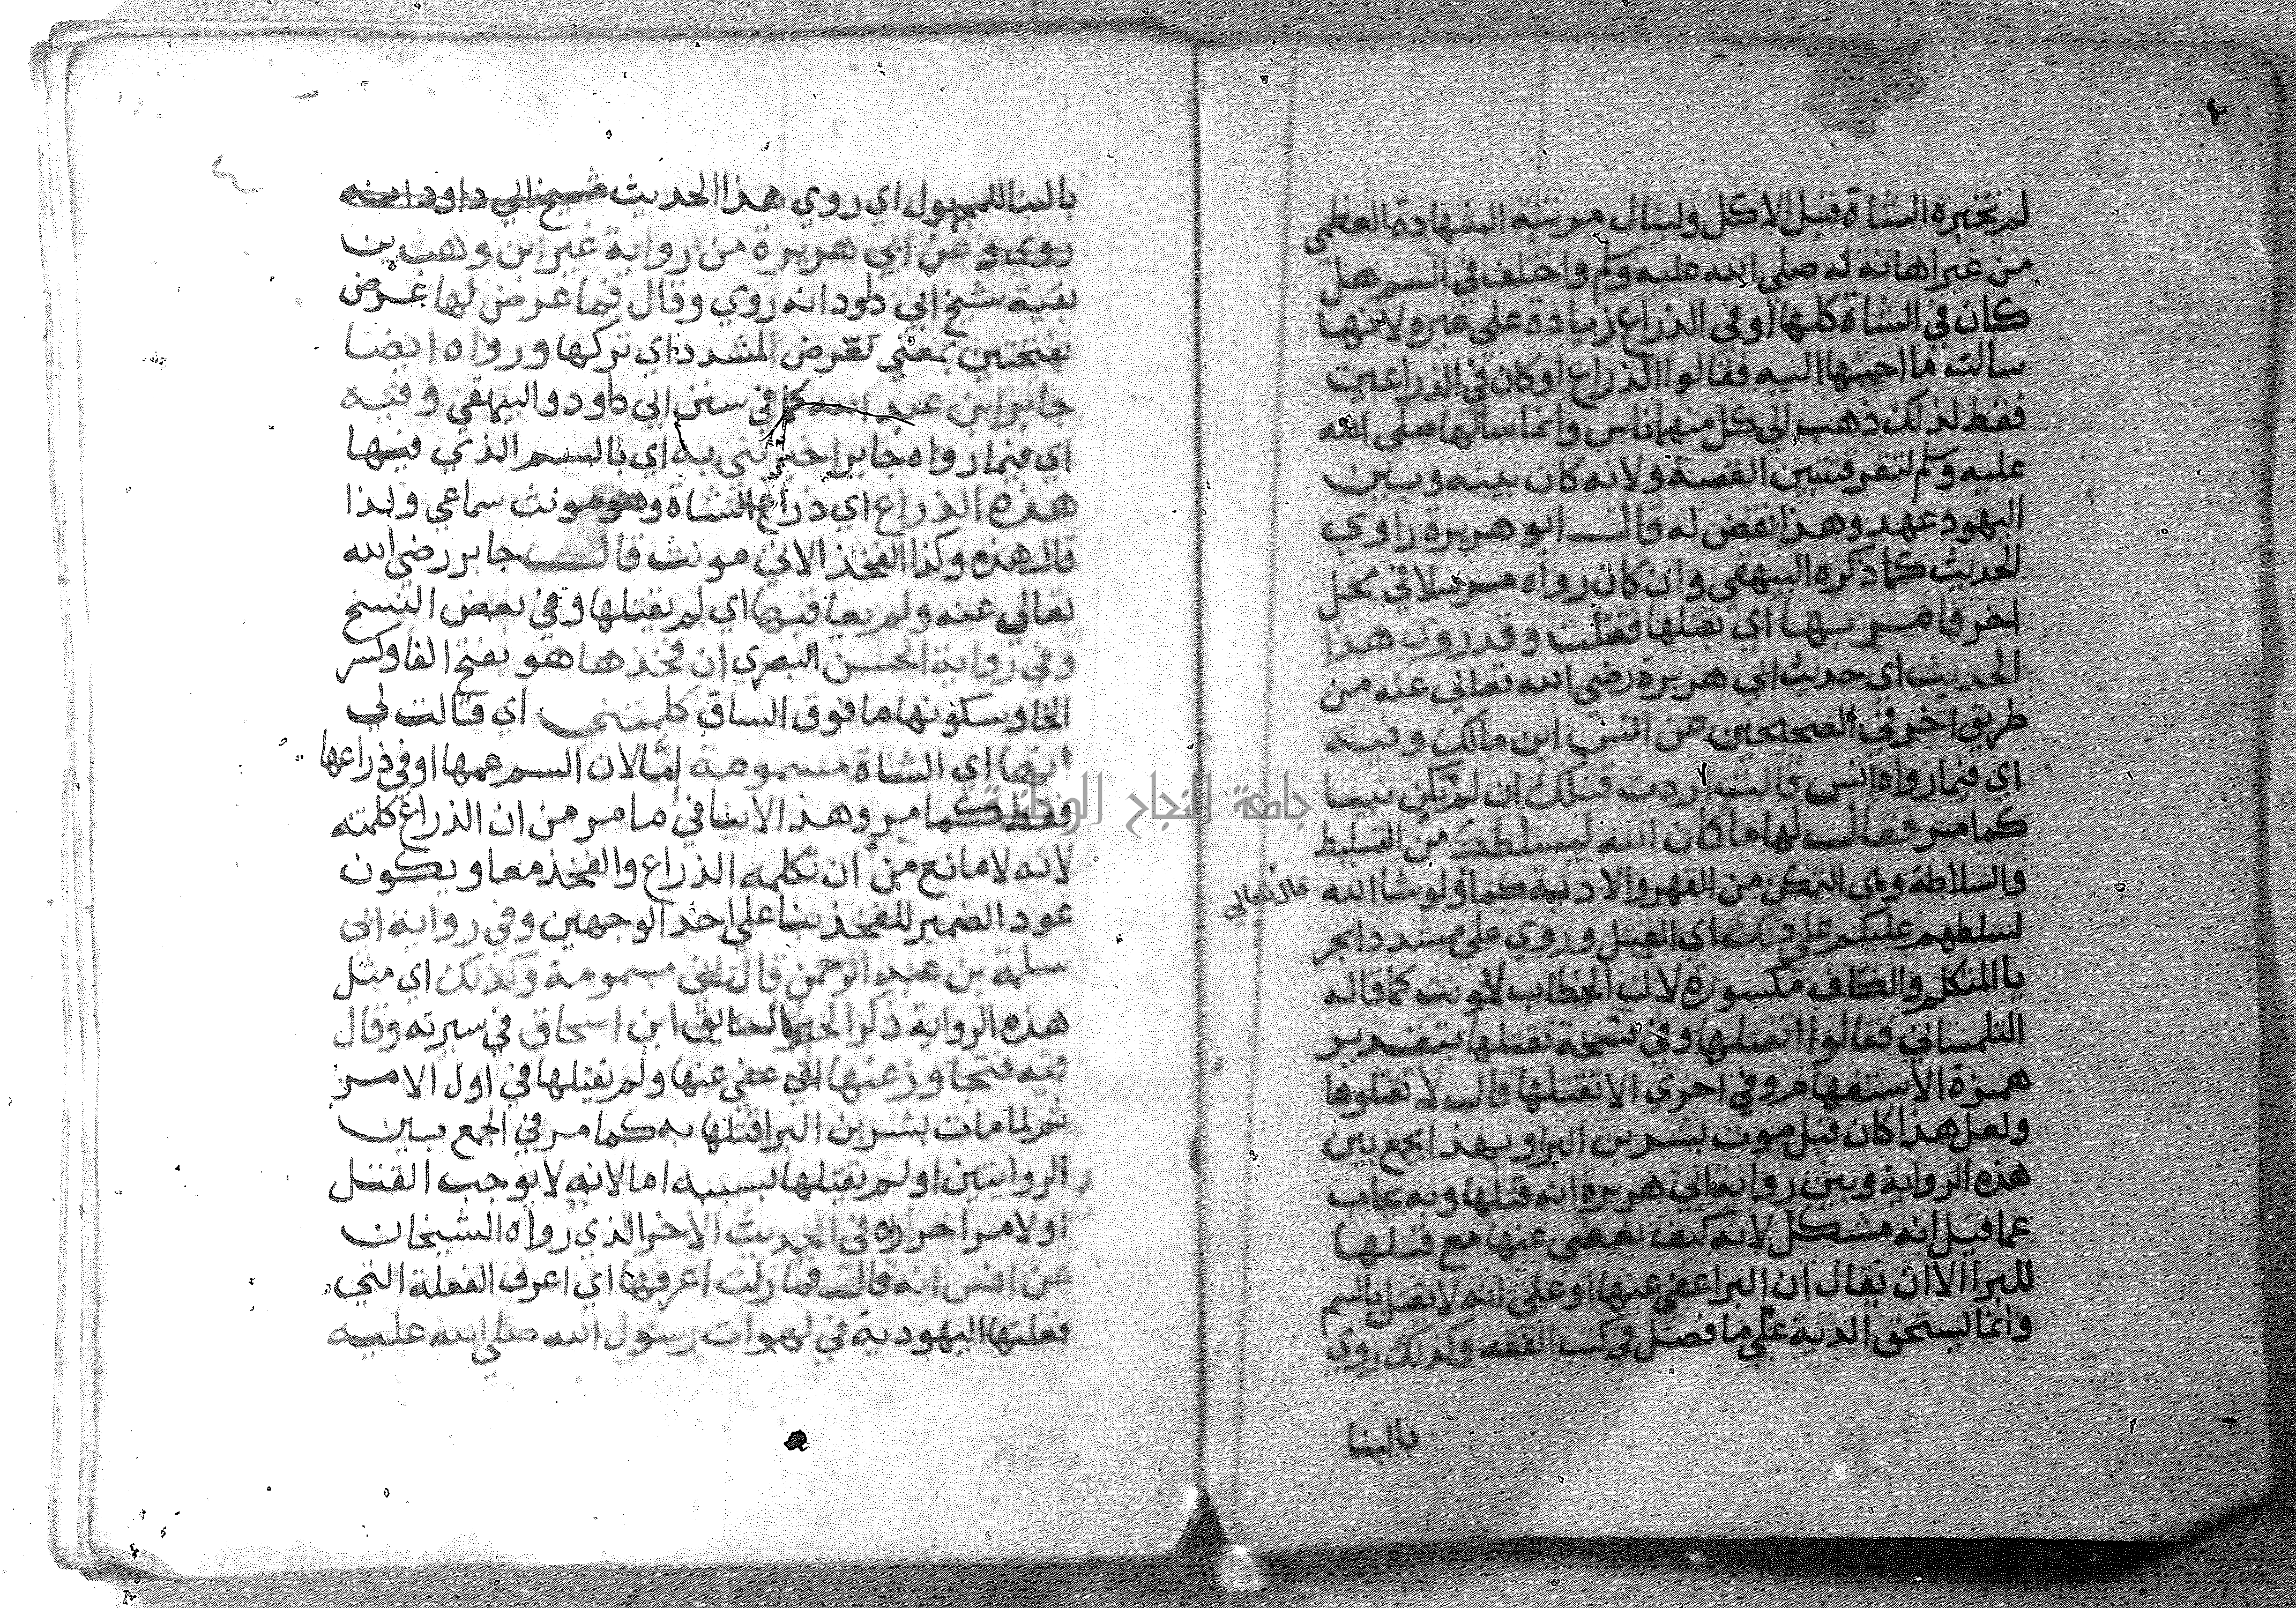 لم تخبره الشاة قبل الاكل ولينال مرتبة الشهادة العظمي
من غير اهانة له صلي الله عليه وسلم واختلف في السم هل
كان في الشاة كلها او في الذراع زيادة علي غيره لانها
سالت ما احبها اليه فقالوا الذراع او كان في الذراعين
فقط لذلك ذهب الي كل منهما ناس وانما سالها صلي الله
عليه وسلم لتقر فتتبين القصة ولانه كان بينه وبين
اليهود عهد وهذا نقض له قال ابو هريرة راوي
الحديث كما ذكره البيهقي وان كان رواه مرسلا في محل
اخر فامر بها اي بقتلها فقتلت وقد روي هذا
الحديث اي حديث ابي هريرة رضي الله تعالي عنه من
طريق اخر في الصحيحين عن انس ابن مالك وفيه
اي فيما رواه انس قالت اردت قتلك ان لم تكن نبيا
كما مر فقال لها ما كان الله ليسلطك من التسليط
والسلاطة وهي التمكن من القهر والاذية كما ولو شا الله
قال تعالي
لسلطهم عليكم علي ذلك اي القتل وروي علي مشددا بجر
يا المتكلم والكاف مكسورة لان الخطاب لمونث كما قاله
التلمساني فقالوا انقتلها وفي نسخة نقتلها بتقدير
همزة الاستفهام وفي اخري الا نقتلها قال لا تقتلوها
ولعل هذا كان قبل موت بشر بن البرا وبهذا يجمع بين
هذه الرواية وبين رواية ابي هريرة انه قتلها وبه يجاب
عما قيل انه مشكل لانه كيف يعفي عنها مع قتلها
للبرا الا ان يقال ان البرا عفي عنها او علي انه لا يقتل بالسم
وانما يستحق الدية علي ما فصل في كتب الفقه وكذلك روي
بالبنا
بالبنا للمجهول اي روي هذا الحديث شيخ ابي داود انه
روي و عن ابي هريرة من رواية غير ابن وهب بن
بقية شيخ ابي داود انه روي وقال فما عرض لها عرض
بفتحتين بمعني تعرض المشدد اي تركها ورواه ايضا
جابر ابن عبد الله كما في سنن ابي داود والبيهقي وفيه
اي فيما رواه جابر اخبرتني به اي بالسم الذي فيها
هذه الذراع اي ذراع الشاة وهو مونث سماعي ولذا
قال هذه وكذا الفخذ الاتي مونث قال جابر رضي الله
تعالي عنه ولم يعاقبها اي لم يقتلها وفي بعض النسخ
وفي رواية الحسن البصري ان فخذها هو بفتح الفا وكسر
الخا وسكونها ما فوق الساق كلمتني اي قالت لي
انها اي الشاة مسمومة اما لان السم عمها او في ذراعها
فقط كما مر وهذا لا ينافي ما مر من ان الذراع كلمته
لانه لا مانع من ان تكلمه الذراع والفخذ معا ويكون
عود الضمير للفخذ بنا علي احد الوجهين وفي رواية ابي
سلمة بن عبد الرحمن قالت اني مسمومة وكذلك اي مثل
هذه الرواية ذكر الخبر السابق ابن اسحاق في سيرته وقال
فيه فتجاوز عنها اي عفي عنها ولم يقتلها في اول الامر
ثم لما مات بشر بن البرا قتلها به كما مر في الجمع بين
الروايتين او لم يقتلها بسببه اما لانه لا يوجب القتل
او لامر اخر راه في الحديث الاخر الذي رواه الشيخان
عن انس انه قال فما زلت اعرفها اي اعرف الفعلة التي
فعلتها اليهودية في لهوات رسول الله صلي الله عليه
جامعة النجاح الوطنية